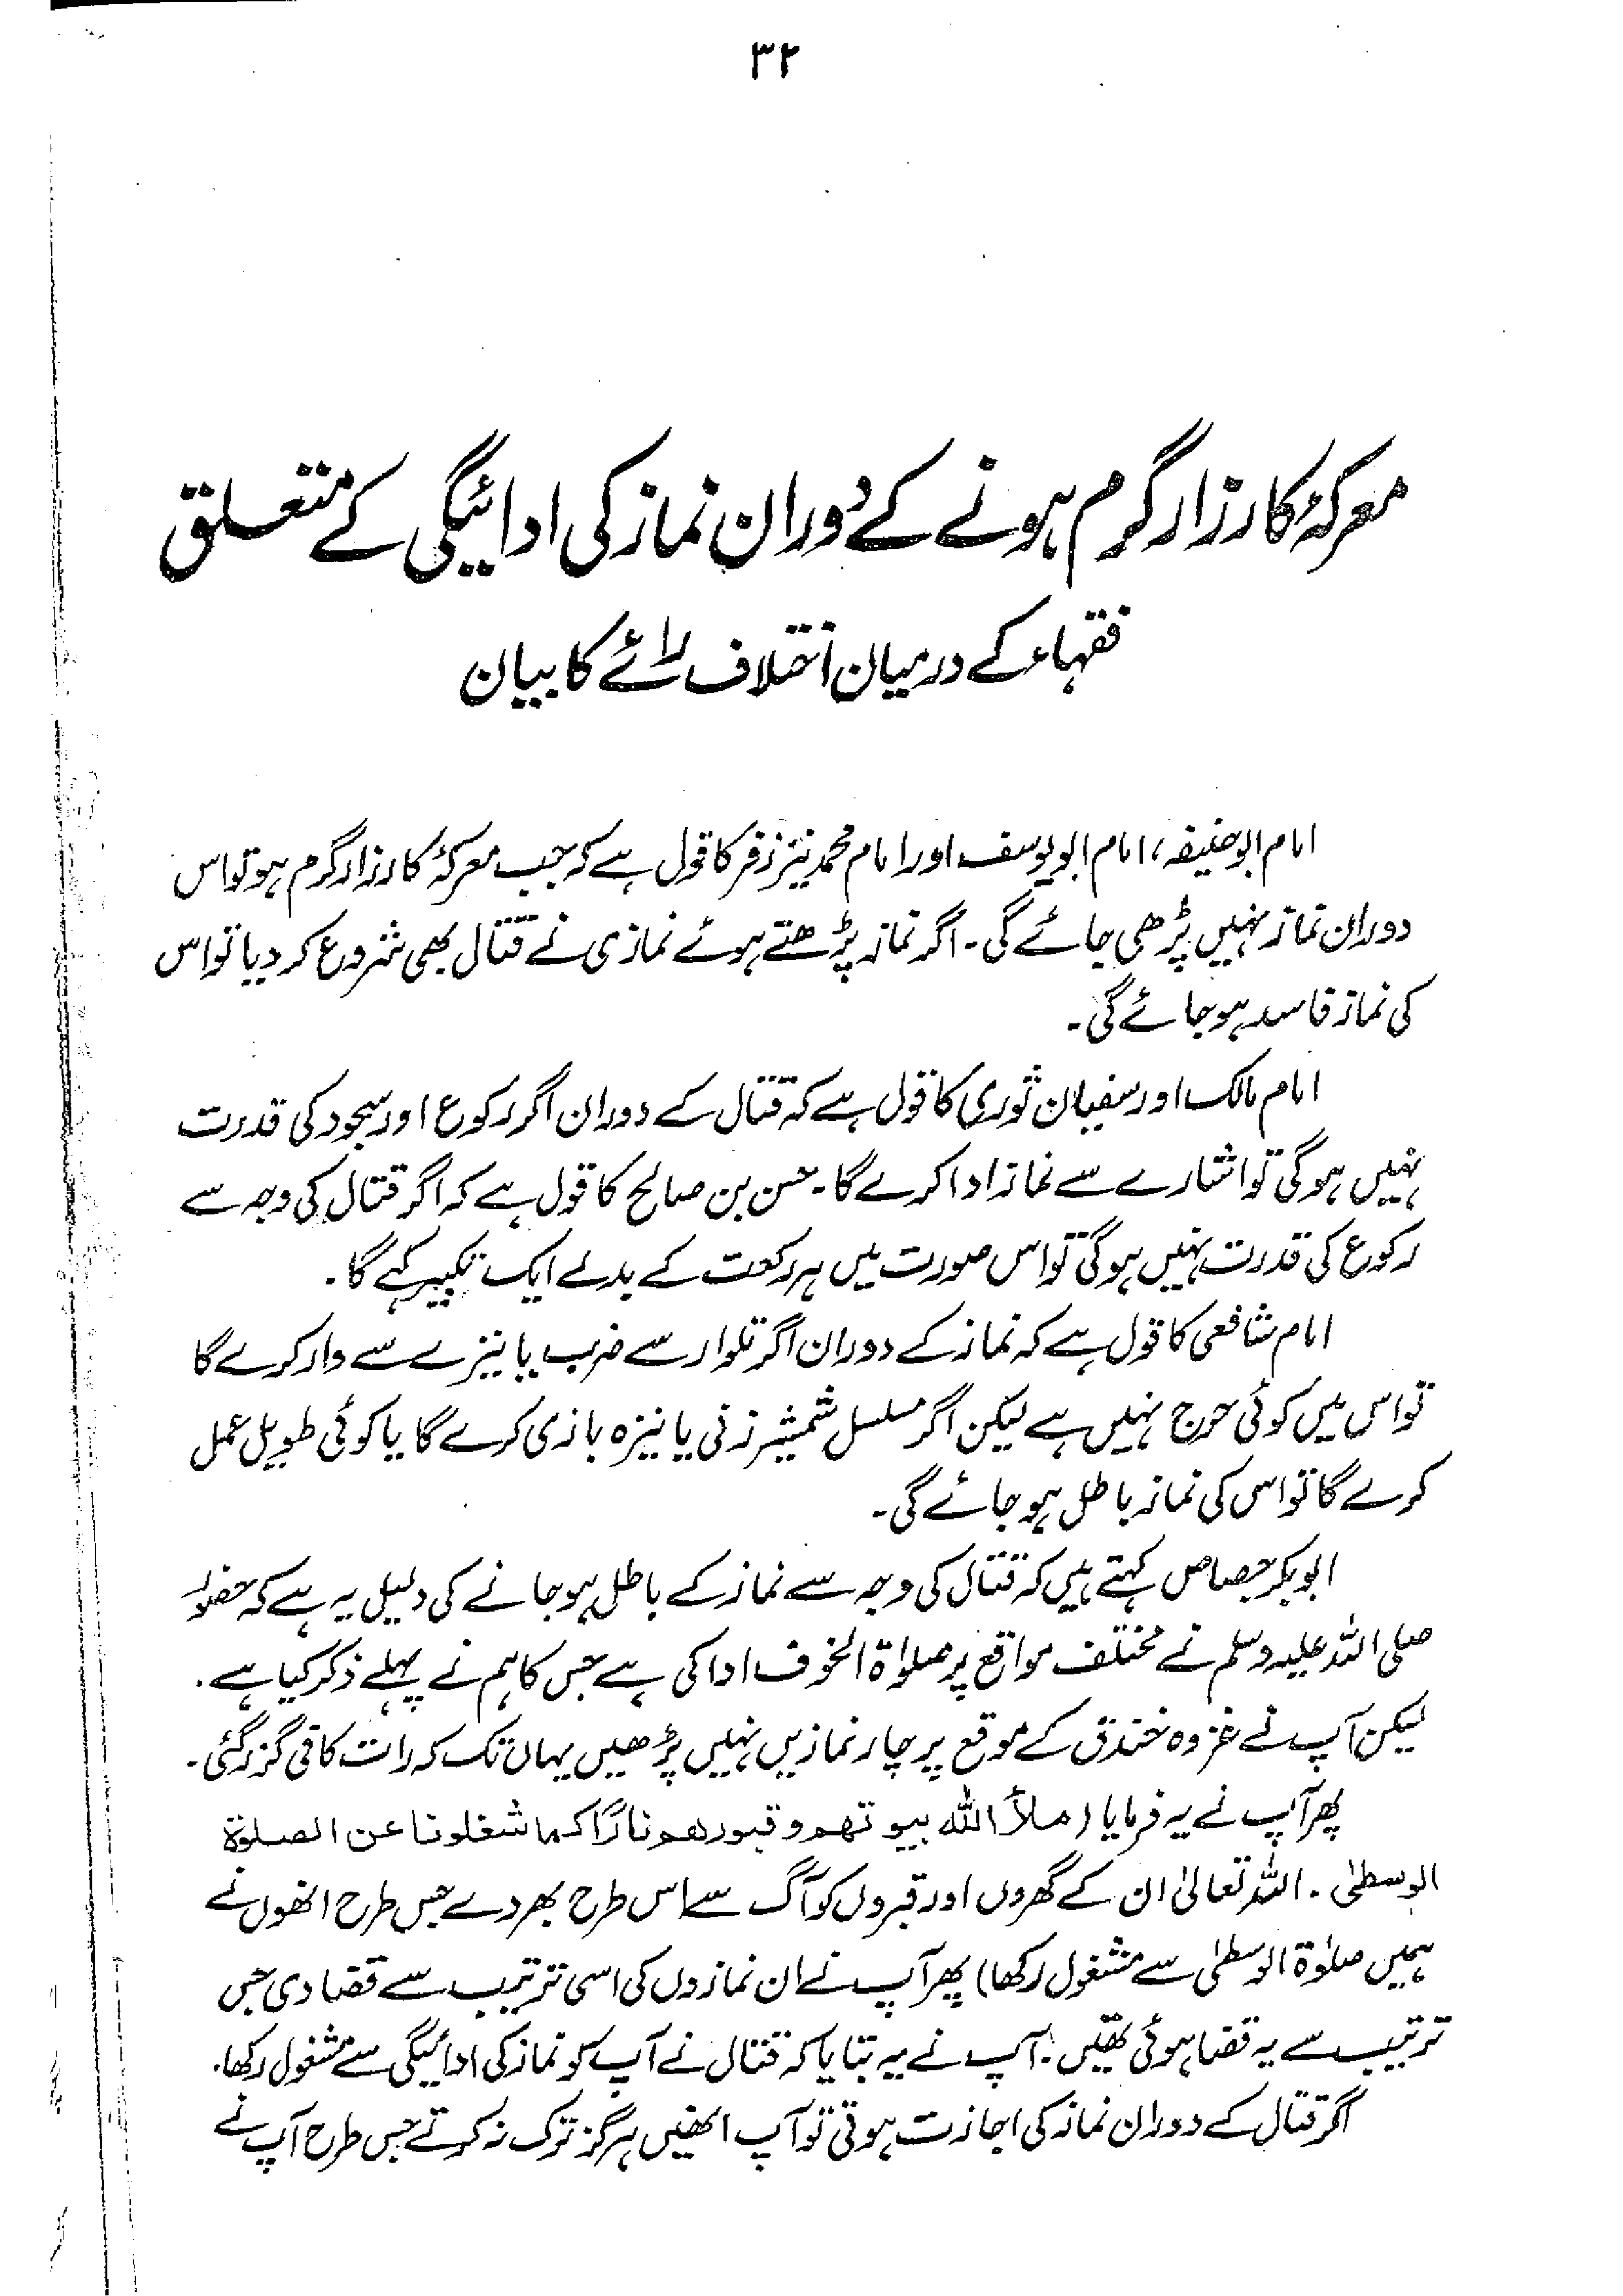 ۳۲
معرکۂ کارزار گرم ہونے کے دوران نماز کی ادائیگی کے متعلق
فقہاء کے درمیان اختلاف رائے کا بیان
امام ابوحنیفہ، امام ابویوسف اور امام محمد نیز زفر کا قول ہے کہ جب معرکۂ کارزار گرم ہو تو اس
دوران نماز نہیں پڑھی جائے گی۔ اگر نماز پڑھتے ہوئے نمازی نے قتال بھی شروع کر دیا تو اس
کی نماز فاسد ہو جائے گی۔
امام مالک اور سفیان ثوری کا قول ہے کہ قتال کے دوران اگر رکوع اور سجود کی قدرت
نہیں ہوگی تو اشارے سے نماز ادا کرے گا۔ حسن بن صالح کا قول ہے کہ اگر قتال کی وجہ سے
رکوع کی قدرت نہیں ہوگی تو اس صورت میں ہر رکعت کے بدلے ایک تکبیر کہے گا۔
امام شافعی کا قول ہے کہ نماز کے دوران اگر تلوار سے ضرب یا نیزے سے وار کرے گا
تو اس میں کوئی حرج نہیں ہے لیکن اگر مسلسل شمشیر زنی یا نیزہ بازی کرے گا یا کوئی طویل عمل
کرے گا تو اس کی نماز باطل ہو جائے گی۔
ابوبکر جصاص کہتے ہیں کہ قتال کی وجہ سے نماز کے باطل ہو جانے کی دلیل یہ ہے کہ حضور
صلی اللہ علیہ وسلم نے مختلف مواقع پر صلوٰۃ الخوف ادا کی ہے جس کا ہم نے پہلے ذکر کیا ہے۔
لیکن آپ نے غزوہ خندق کے موقع پر چار نمازیں نہیں پڑھیں یہاں تک کہ رات کافی گزر گئی۔
پھر آپ نے یہ فرمایا (ملأ اللہ بیوتھم وقبورھم نارًا کما شغلونا عن الصلوۃ
الوسطیٰ۔ اللہ تعالیٰ ان کے گھروں اور قبروں کو آگ سے اس طرح بھر دے جس طرح انھوں نے
ہمیں صلوٰۃ الوسطیٰ سے مشغول رکھا) پھر آپ نے ان نمازوں کی اسی ترتیب سے قضا دی جس
ترتیب سے یہ قضا ہوئی تھیں۔ آپ نے یہ بتایا کہ قتال نے آپ کو نماز کی ادائیگی سے مشغول رکھا۔
اگر قتال کے دوران نماز کی اجازت ہوتی تو آپ انھیں ہرگز ترک نہ کرتے جس طرح آپ نے